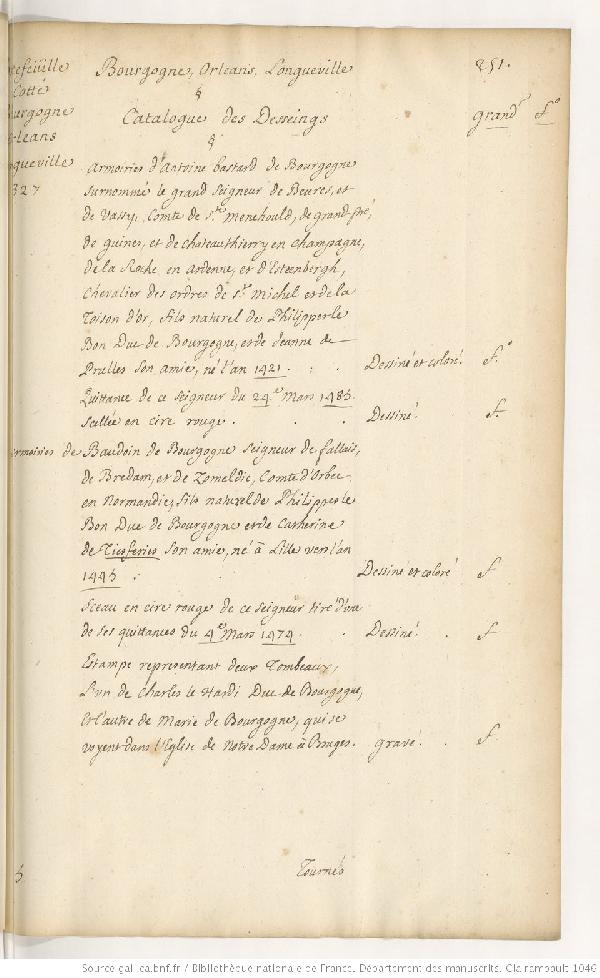 Bourgogne, Orleans, Longueville
251.
Catalogue des Desseings
grandr fo
efeüille
Cotté
urgogne
leans
ngueville
327
Armoiries d'Antoine bastard de Bourgogne
surnommé le grand Seigneur de Beures, et
de Vassy, Comte de Ste menehould, de grandpré,
de guines, et de chateauthierry en champagne,
de la Roche en ardenne, et d'Esteenbergh,
Chevalier des ordres de St michel et de la
Toison d'or, fils naturel de Philippe le
Bon Duc de Bourgogne, et de Jeanne de
Prulles son amie, né l'an 1421. Dessiné et coloré. fo
Quittance de ce Seigneur du 24e Mars 1485.
scellée en cire rouge. Dessiné. f.
armoiries de Baudoin de Bourgogne seigneur de fallais,
de Bredam, et de Zomeldic, Comte d'Orbec
en Normandie, fils naturel de Philippe le
Bon Duc de Bourgogne et de Catherine
de Tiesferies son amie, né à Lille vers l'an
1445 Dessiné et coloré f
Sceau en cire rouge de ce seigneur tiré d'une
de ses quittances du 4e Mars 1474. Dessiné. f
Estampe representant deux Tombeaux,
L'un de Charles le Hardi Duc de Bourgogne,
Et l'autre de Marie de Bourgogne, qui se
voyent dans l'Eglise de Notre Dame à Bruges. gravé. f
Tournés
Source gallica.bnf.fr / Bibliothèque nationale de France. Département des manuscrits. Clairambault 1046